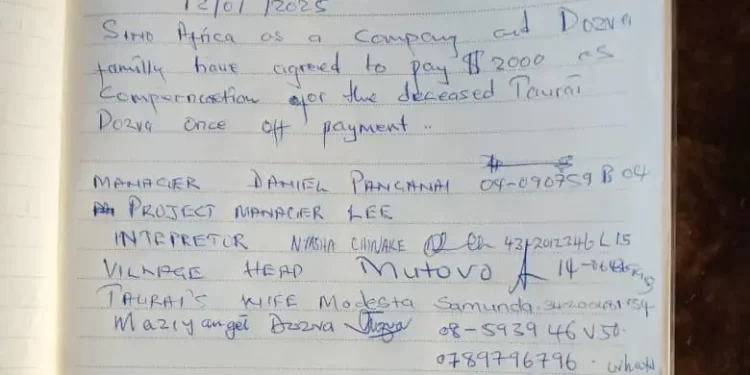 12/01/2025
Sino Africa as a Company and Dozva
familly have agreed to pay $2000 as
Comperncastion for the deceased Taurai
Dozva once off payment..
MANAGER DANIEL PANGANAI 04-090759 B 04
PROJECT MANAGER LEE
INTEPRETOR NYASHA CHIWAKE 43-2012346 L 15
VILLAGE HEAD Mutovo 14-
TAURAI'S WIFE Modesta Samunda.
Maziyangei Dozva 08-593946 V 50.
0789796796. whats